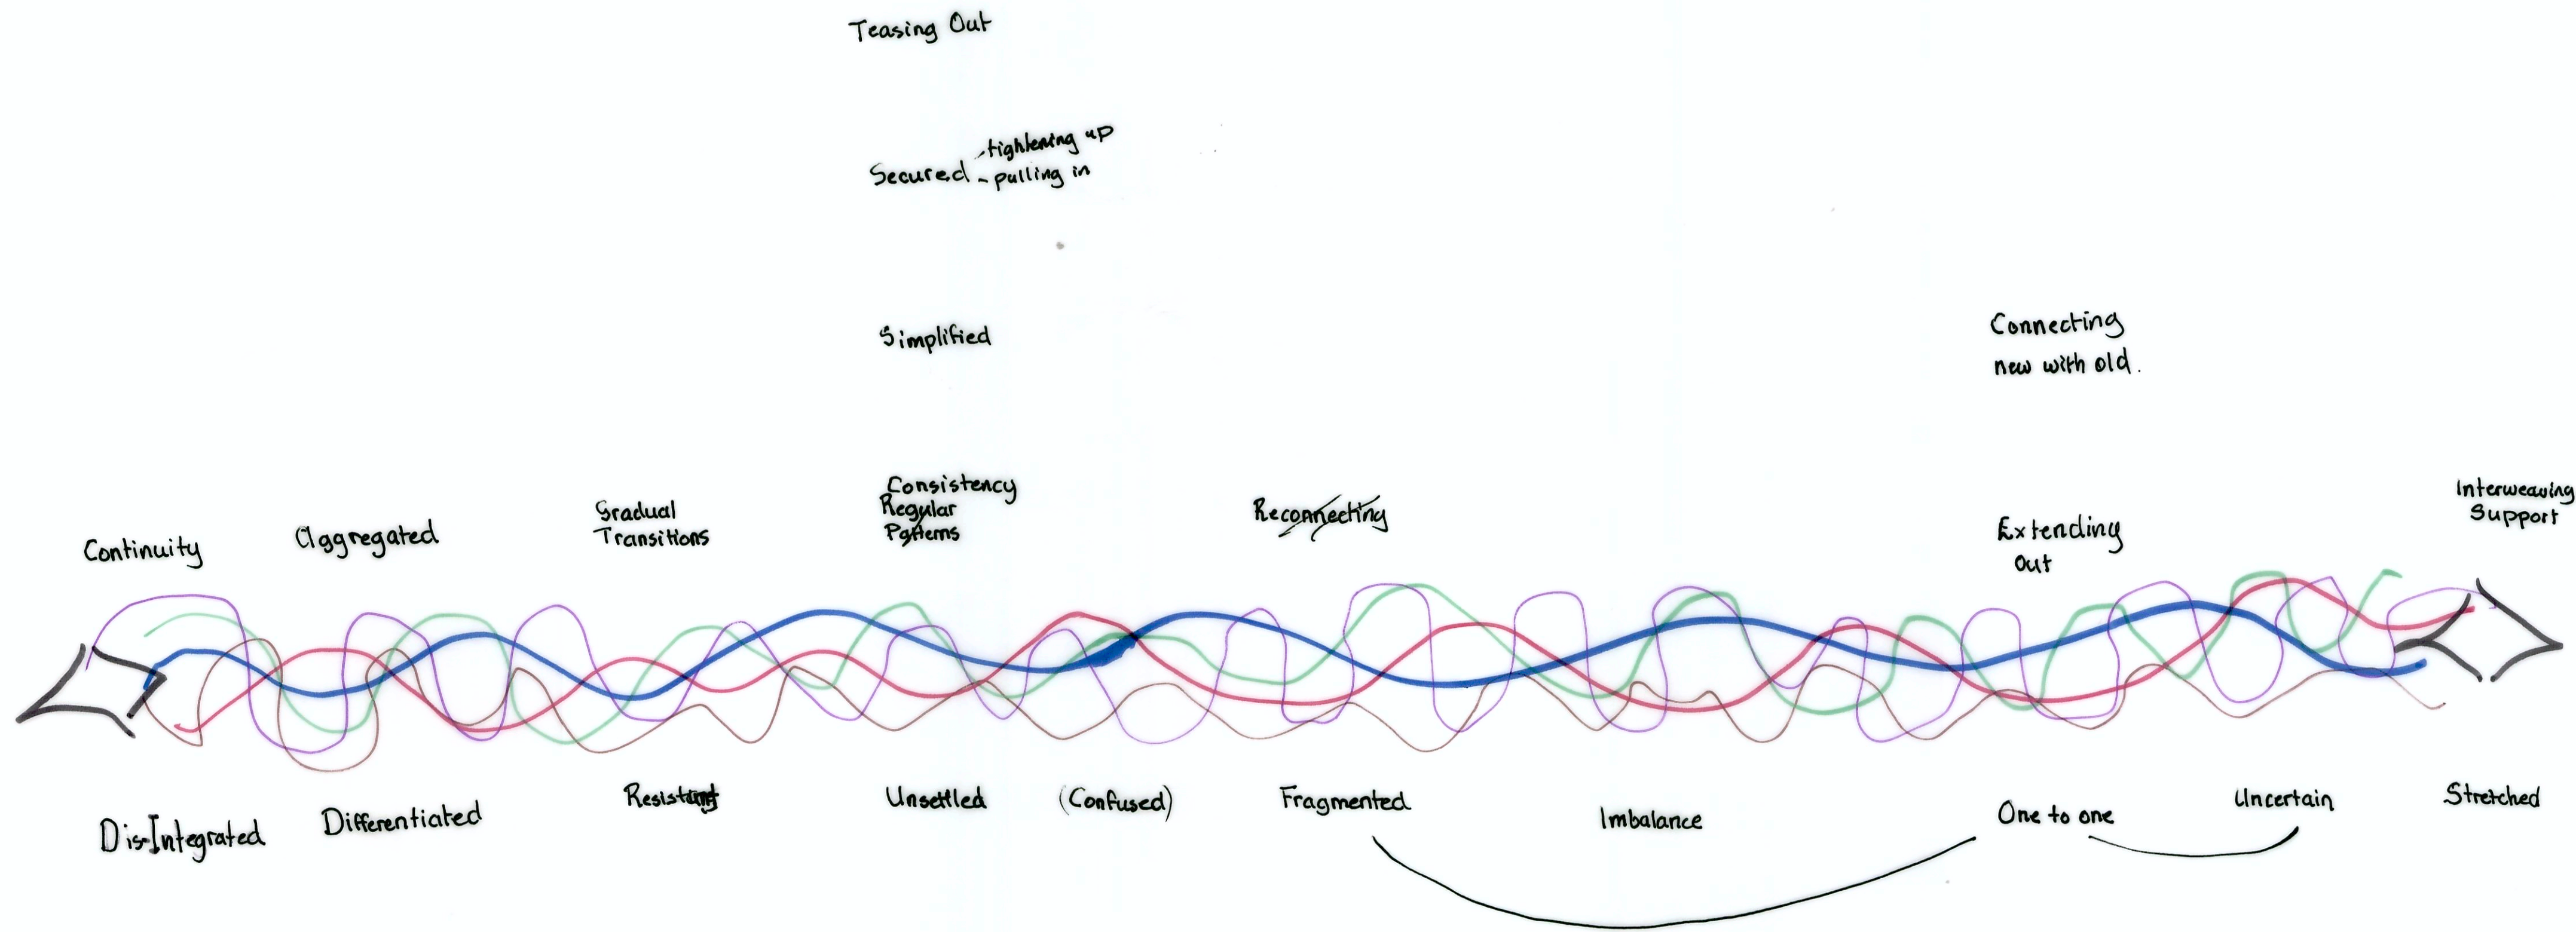 Teasing Out
Secured - tightening up
- pulling in
Simplified
Connecting
new with old.
Continuity
Aggregated
Gradual
Transitions
Consistency
Regular
Patterns
Reconnecting
Extending
Out
Interweaving
Support
Dis-Integrated
Differentiated
Resistant
Unsettled
(Confused)
Fragmented
Imbalance
One to one
Uncertain
Stretched